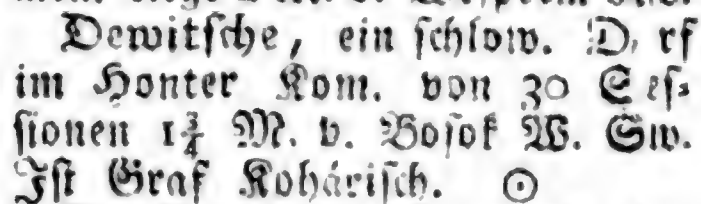 Dewitsche, ein schlow. D rf
im Honter Kom. von 30 Ses-
sionen 1¾ M. v. Bosok W. Sw.
Ist Graf Kohárisch. ⊙